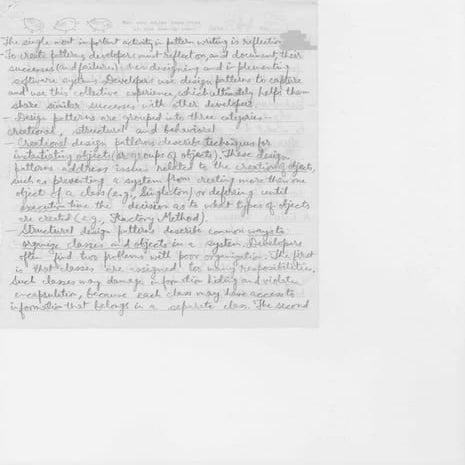 The single most important activity in pattern writing is reflection.
To create patterns, developers must reflect on, and document, their
successes (and failures) when designing and implementing
software systems. Developers use design patterns to capture
and use this collective experience, which ultimately helps them
share similar successes with other developers.
- Design patterns are grouped into three categories -
creational, structural and behavioral
- Creational design patterns describe techniques for
instantiating objects (or groups of objects). These design
patterns address issues related to the creation of objects,
such as preventing a system from creating more than one
object of a class (e.g., Singleton) or deferring until
execution time the decision as to what types of objects
are created (e.g., Factory Method).
- Structural design patterns describe common ways to
organize classes and objects in a system. Developers
often find two problems with poor organization. The first
is that classes are assigned too many responsibilities.
Such classes may damage information hiding and violate
encapsulation, because each class may have access to
information that belongs in a separate class. The second